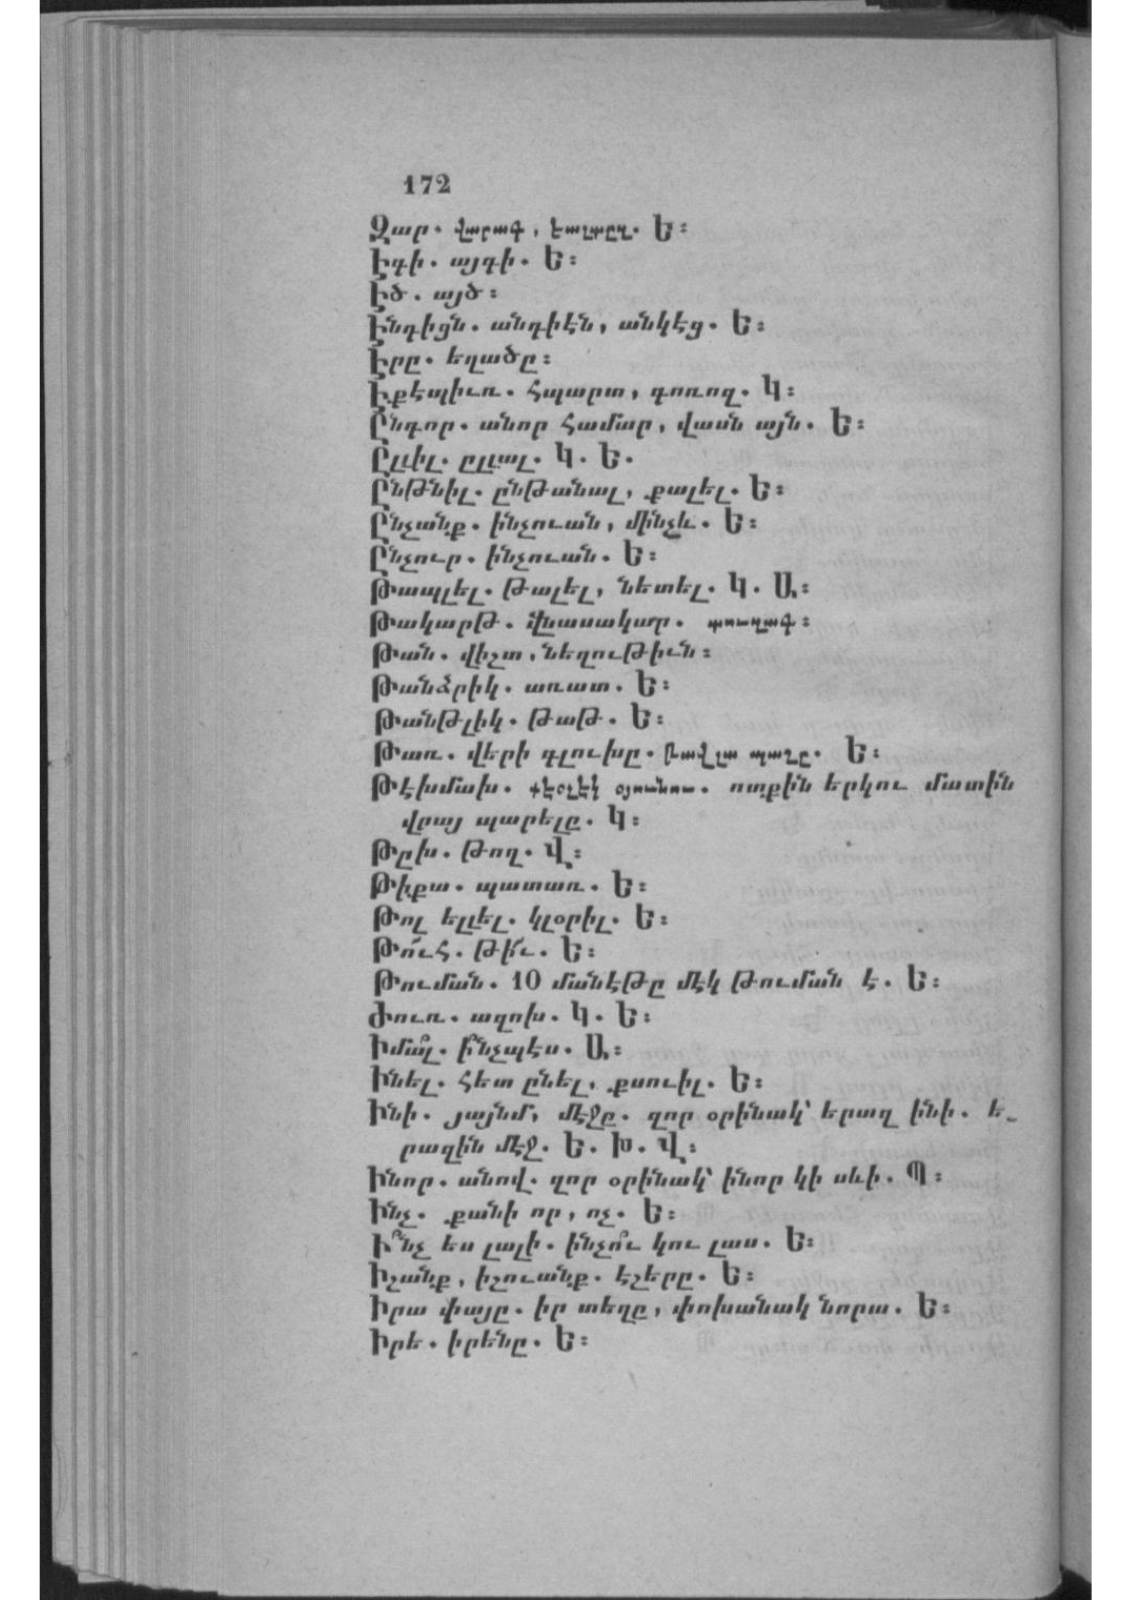 172
Զար. վարագ, եալտըզ. Ե:
Էգի. այգի. Ե:
Էծ. այծ:
Էնդիցն. անդիէն, անկէց. Ե:
Էրը. եղածը:
Էքէպիւռ. Հպարտ, գոռոզ. Կ:
Ընդոր. անոր Համար, վասն այն. Ե:
Ըլևիլ. ըլլալ. Կ. Ե.
Ընթնիլ. ընթանալ, քալել. Ե:
Ընչանք. ինչուան, մինչև. Ե:
Ընչուր. ինչուան. Ե:
Թապլել. Թալել, նետել. Կ. Ա:
Թակարթ. վնասակար.
Թան. վիշտ, նեղութիւն:
Թանձրիկ. առատ. Ե:
Թանթլիկ. թաթ. Ե:
Թառ. վերի գլուխը. թավլա պաշը. Ե:
Թէխմախ. ոտքին երկու մատին
վրայ պարելը. Կ:
Թըխ. Թող. Վ:
Թիքա. պատառ. Ե:
Թոլ ելլել. կլօրիլ. Ե:
Թո՛ւՀ. Թի՛ւ. Ե:
Թուման. 10 մանէթը մէկ թուման է. Ե:
Ժուռ. ազոխ. Կ. Ե:
Իմա՞լ. ի՞նչպէս. Ա:
Ինել. Հետ ընել, քսուիլ. Ե:
Ինի. յայնմ, մէջը. զոր օրինակ՝ երազ ինի. ե֊
րազին մէջ. Ե. Խ. Վ:
Ինոր. անով. զոր օրինակ՝ ինոր կի սևի. Պ:
Ինչ. քանի որ, ոչ. Ե:
Ի՞նչ ես լալի. ինչո՞ւ կու լաս. Ե:
Իշանք, իշուանք. էշերը. Ե:
Իրա փայը. իր տեղը, փոխանակ նորա. Ե:
Իրե. իրենը. Ե: